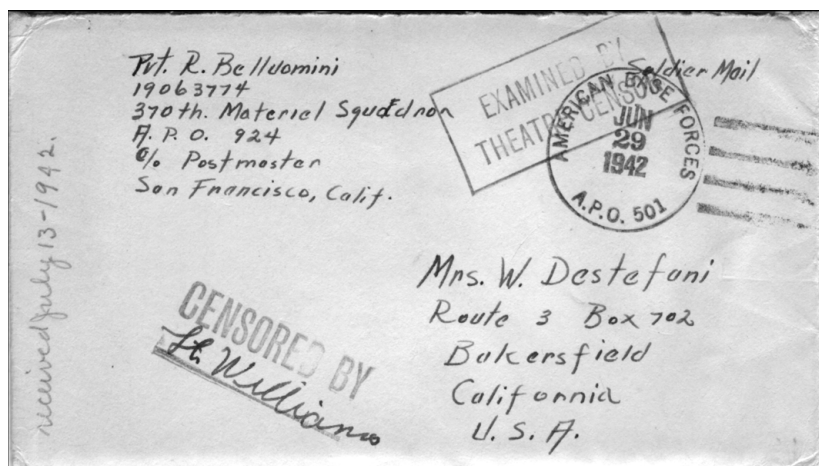 Pvt. R. Belluomini
19063774
370th. Materiel Squadron
A. P. O. 924
c/o Postmaster
San Francisco, Calif.
Soldier Mail
EXAMINED BY
THEATRE CENSOR
AMERICAN BASE FORCES
JUN
29
1942
A.P.O. 501
received July 13-1942.
CENSORED BY
Lt. Williams
Mrs. W. Destefani
Route 3 Box 702
Bakersfield
California
U. S. A.